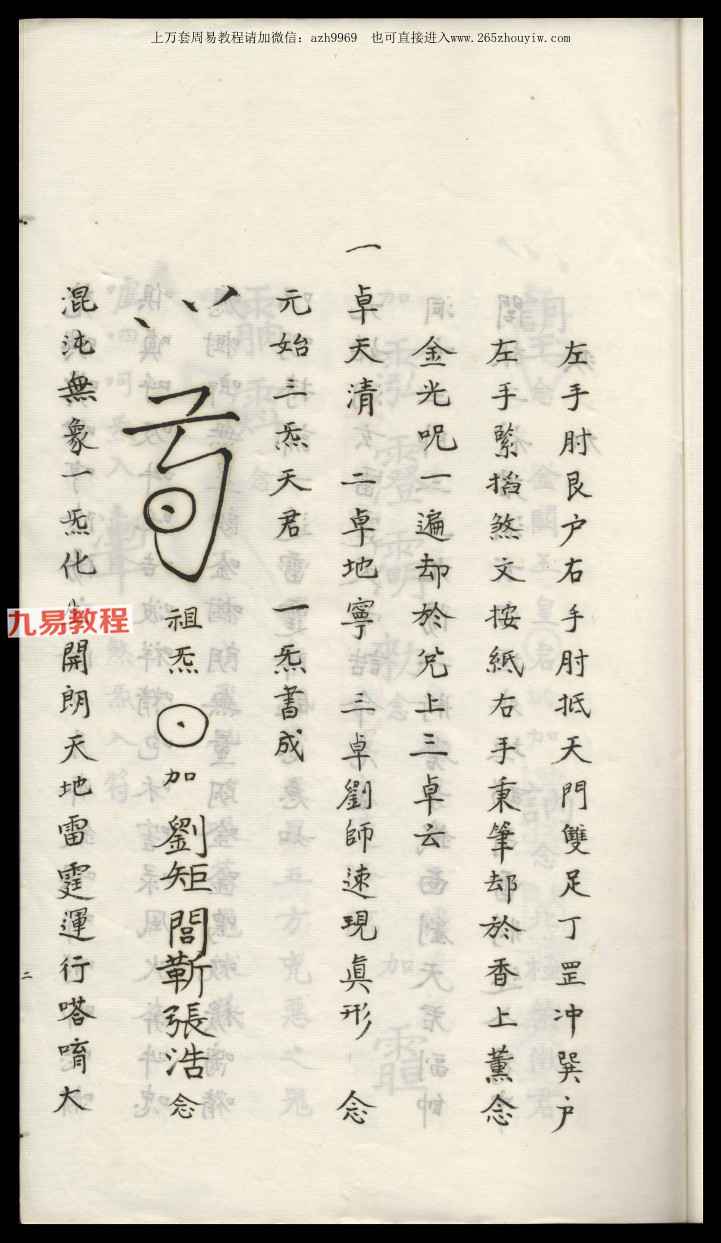 上万套周易教程请加微信：azh9969 也可直接进入www.265zhouyiw.com
左手肘艮户右手肘抵天門雙足丁罡冲巽户
左手緊掐煞文按紙右手秉筆却於香上薰念
金光呪一遍却於兌上三卓云
一卓天清 二卓地寧 三卓劉師速現眞形 念
元始三炁天君 一炁書成
祖炁 加 劉矩閻靳張浩 念
混沌無象一炁化 開朗天地雷霆運行嗒唷大
九易教程
二